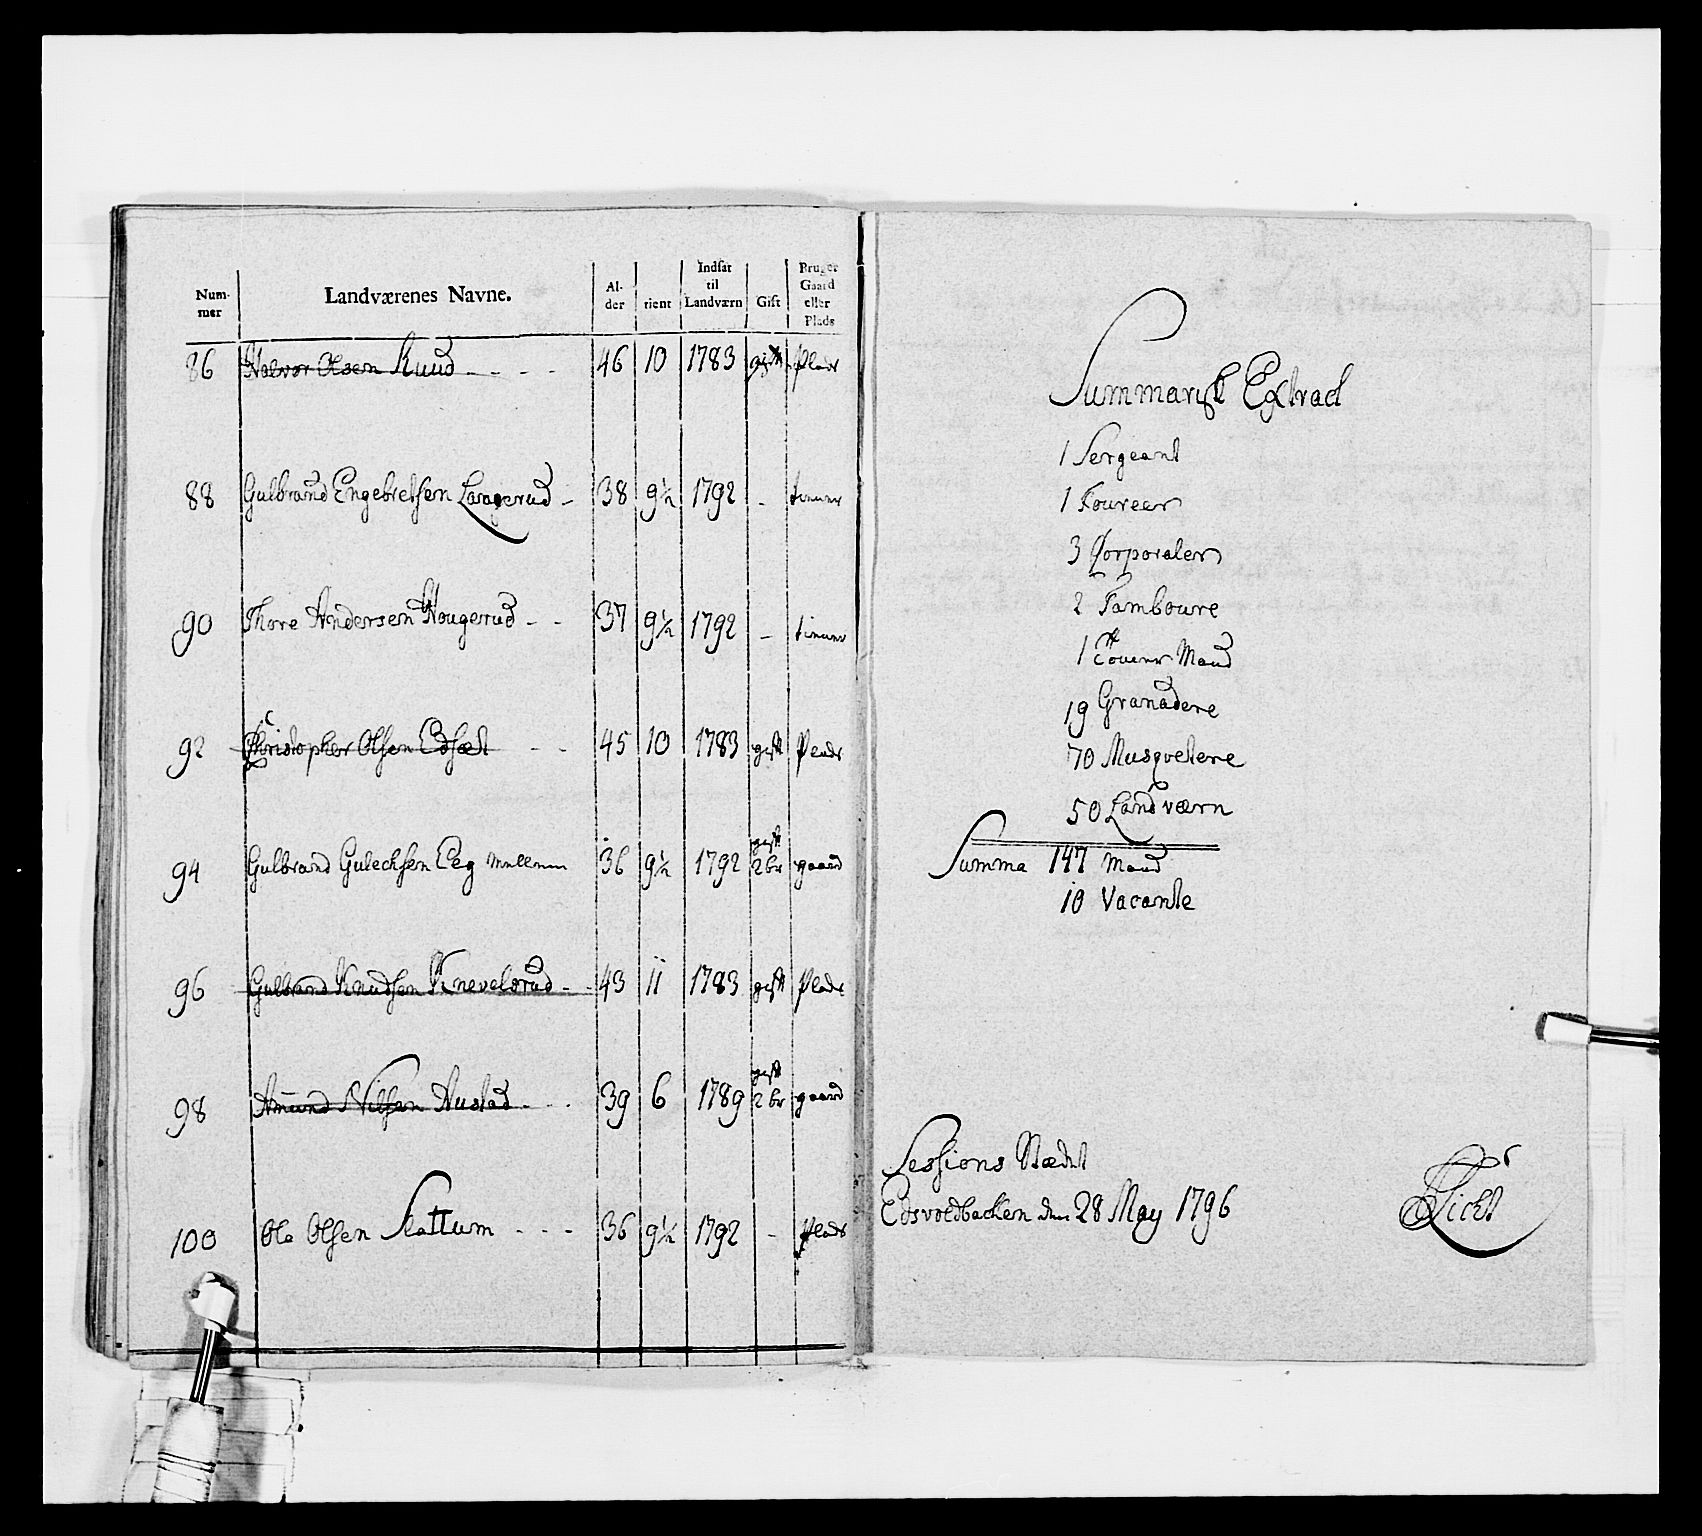 Num-
mer
Landværenes Navne.
Al-
der
tient
Indsat
til
Landværn
Gift
Bruger
Gaard
eller
Plads
86 Halvor Olsen Ruud 46 10 1783 gift Plads
88 Gulbrand Engebretsen Laagerud 38 9½ 1792 - tiener
90 Thore Andersen Hougerud 37 9½ 1792 - tiener
92 Christopher Olsen Edsæt 45 10 1783 gift Plads
94 Gulbrand Gulechsen Eeg 36 9½ 1792 gift 2 br gaard
96 Gulbrand Knudsen Knevelsrud 43 11 1783 gift Plads
98 Amund Nilsen Austad 39 6 1789 gift 2 br gaard
100 Ole Olsen Skattum 36 9½ 1792 - Plads
Summarisk Extract
1 Sergeant
1 Foureer
3 Corporaler
2 Tamboure
1 Mand
19 Granadere
70 Musqvetere
50 Landværn
Summa 147 Mand
10 Vacante
Sessions Stædet
Edsvoldbacken den 28 May 1796
Licht